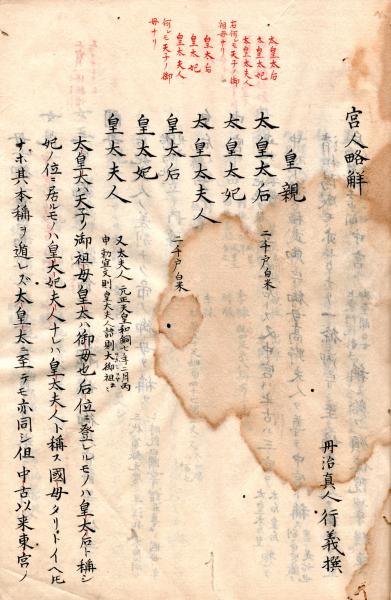 宮人略解
丹治真人行義撰
皇親
太皇太后 二千戸白米
太皇太妃
太皇太夫人
皇太后 二千戸白米
皇太妃
皇太夫人
又太夫人 元正天皇和銅七年二月丙
申勅宣文則皇大夫人語則大御祖ミ
太皇太ハ天子ノ御祖母皇太ハ御母也后位ニ登レルモノハ皇太后ト稱シ
妃ノ位ニ居ルモノハ皇太妃夫人ナレハ皇太夫人ト稱ス國母タリトイヘ𪜈
ナホ其本稱ヲ遁レズ太皇太ニ至テモ亦同シ但中古以来東宮ノ
太皇太后
太皇太妃
太皇太夫人
右何レモ天子ノ御
祖母ナリ
皇太后
皇太妃
皇太夫人
何レモ天子ノ御
母ナリ